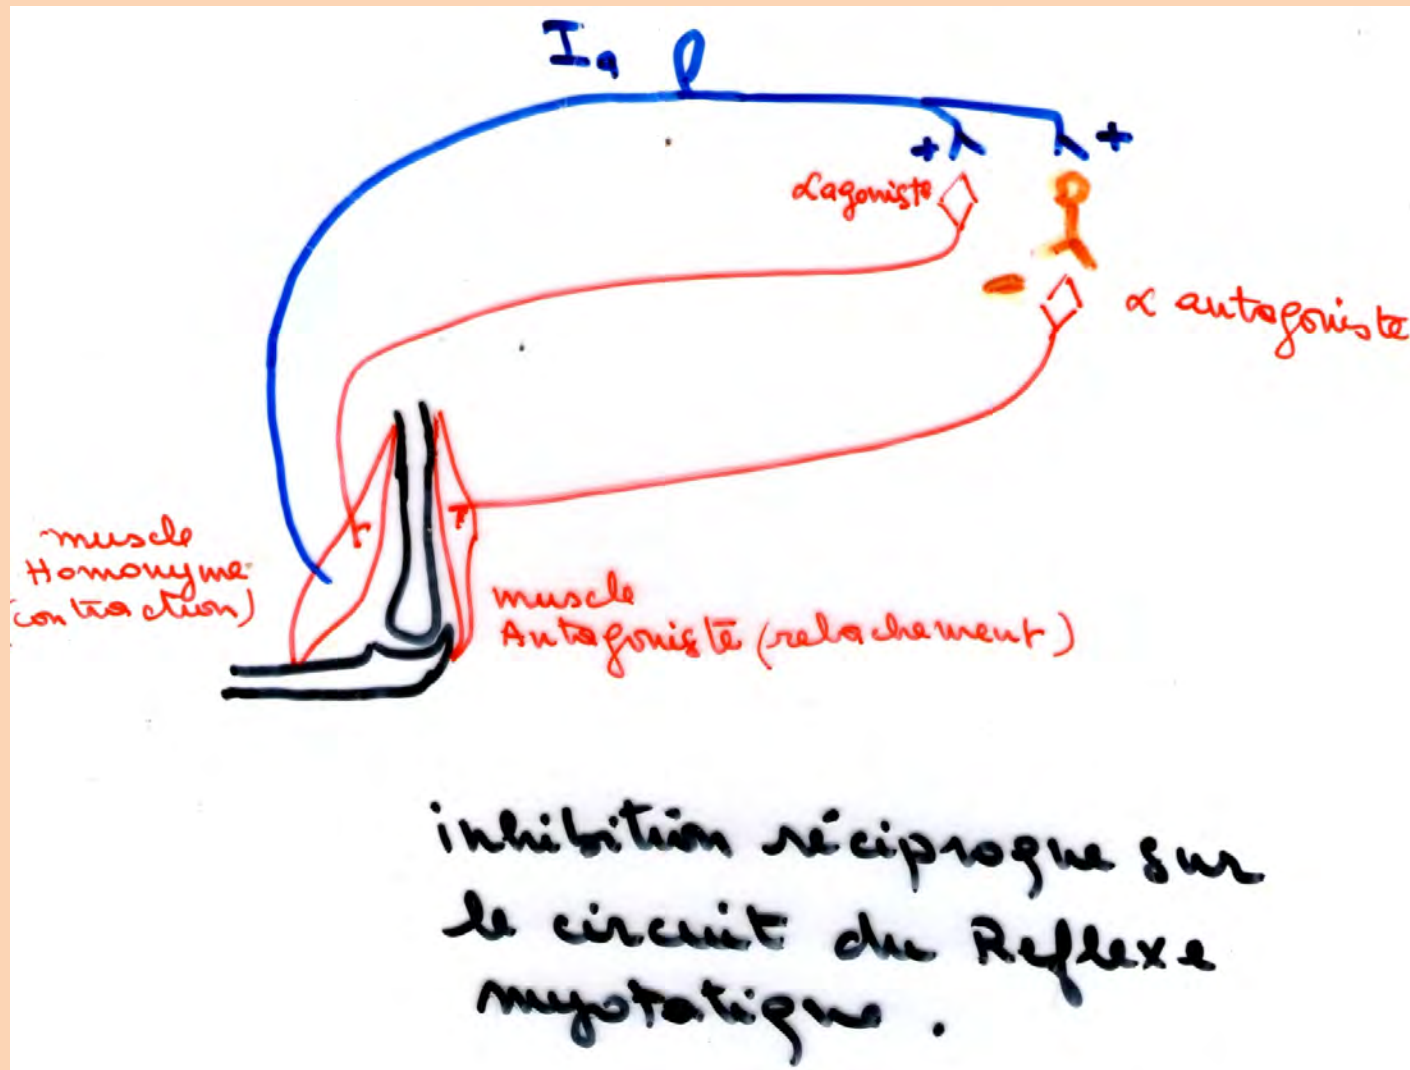 Ia
+ +
α agoniste
-
α antagoniste
muscle
Homonyme
(contraction)
muscle
Antagoniste (relachement)
inhibition réciproque sur
le circuit du Reflexe
myotatique.